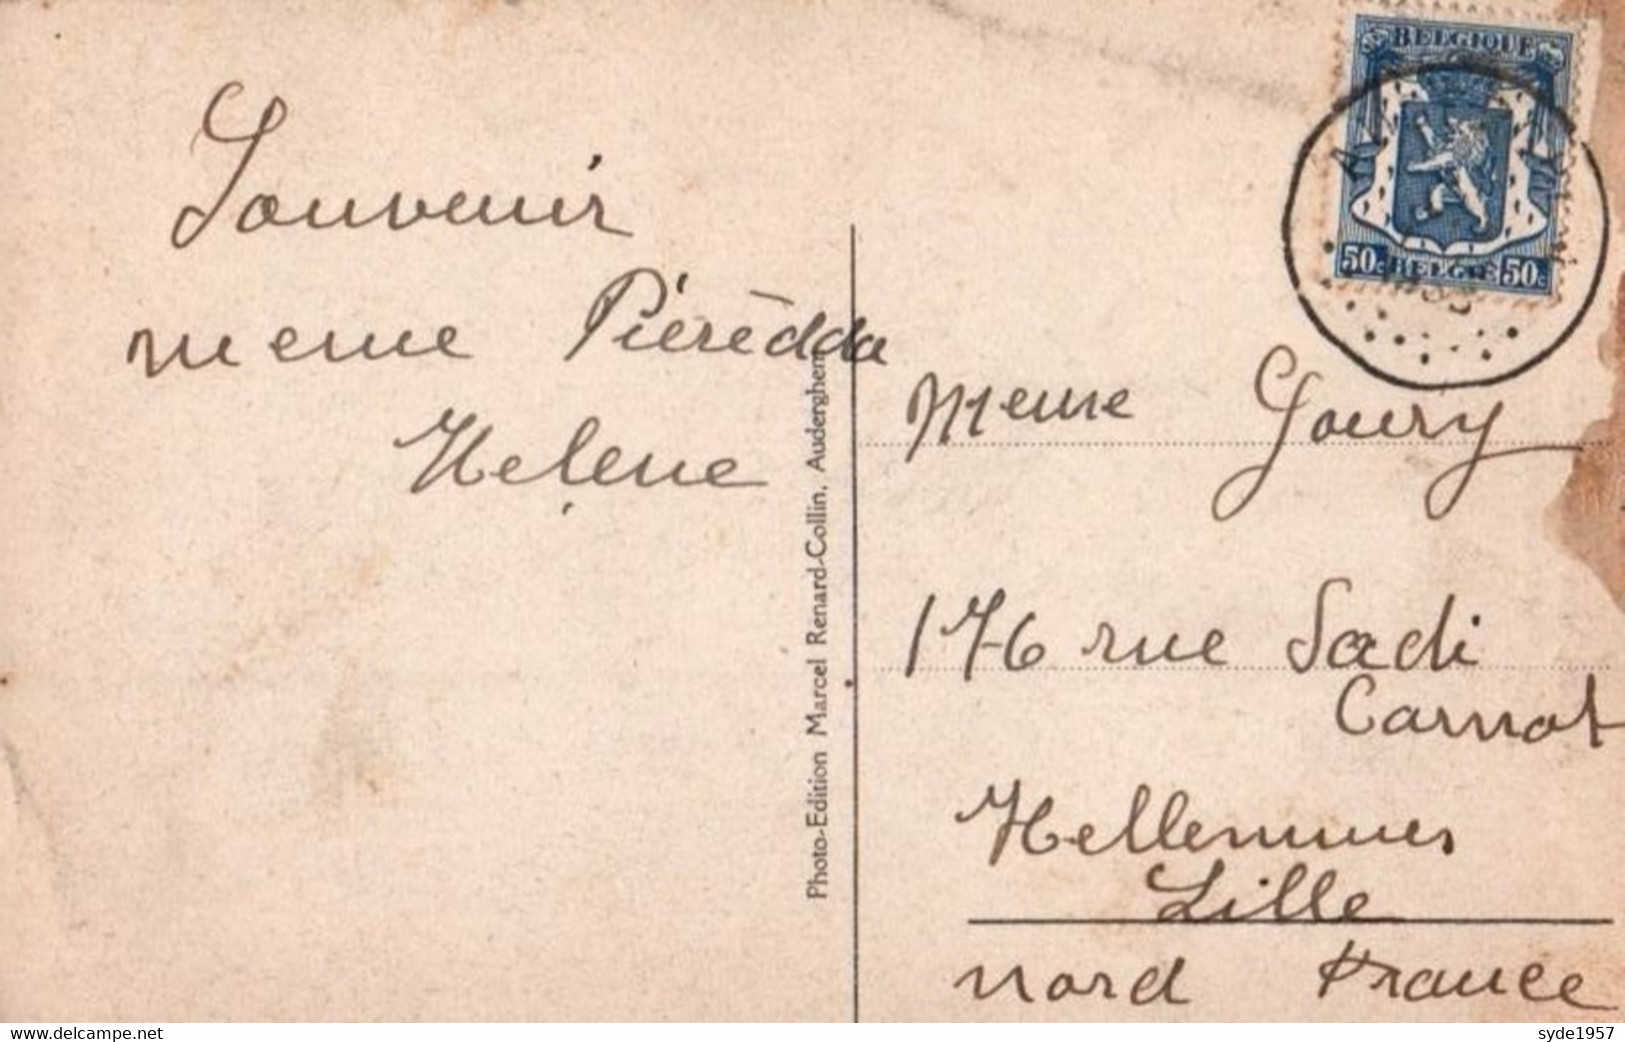 Souvenir
meme Pierèdda
Helene
Photo-Edition Marcel Renard-Collin, Auderghem
BELGIQUE
50c BELGIE 50c
meme Goury
176 rue Sadi
Carnot
Hellemmes
Lille
nord France
www.delcampe.net
syde1957